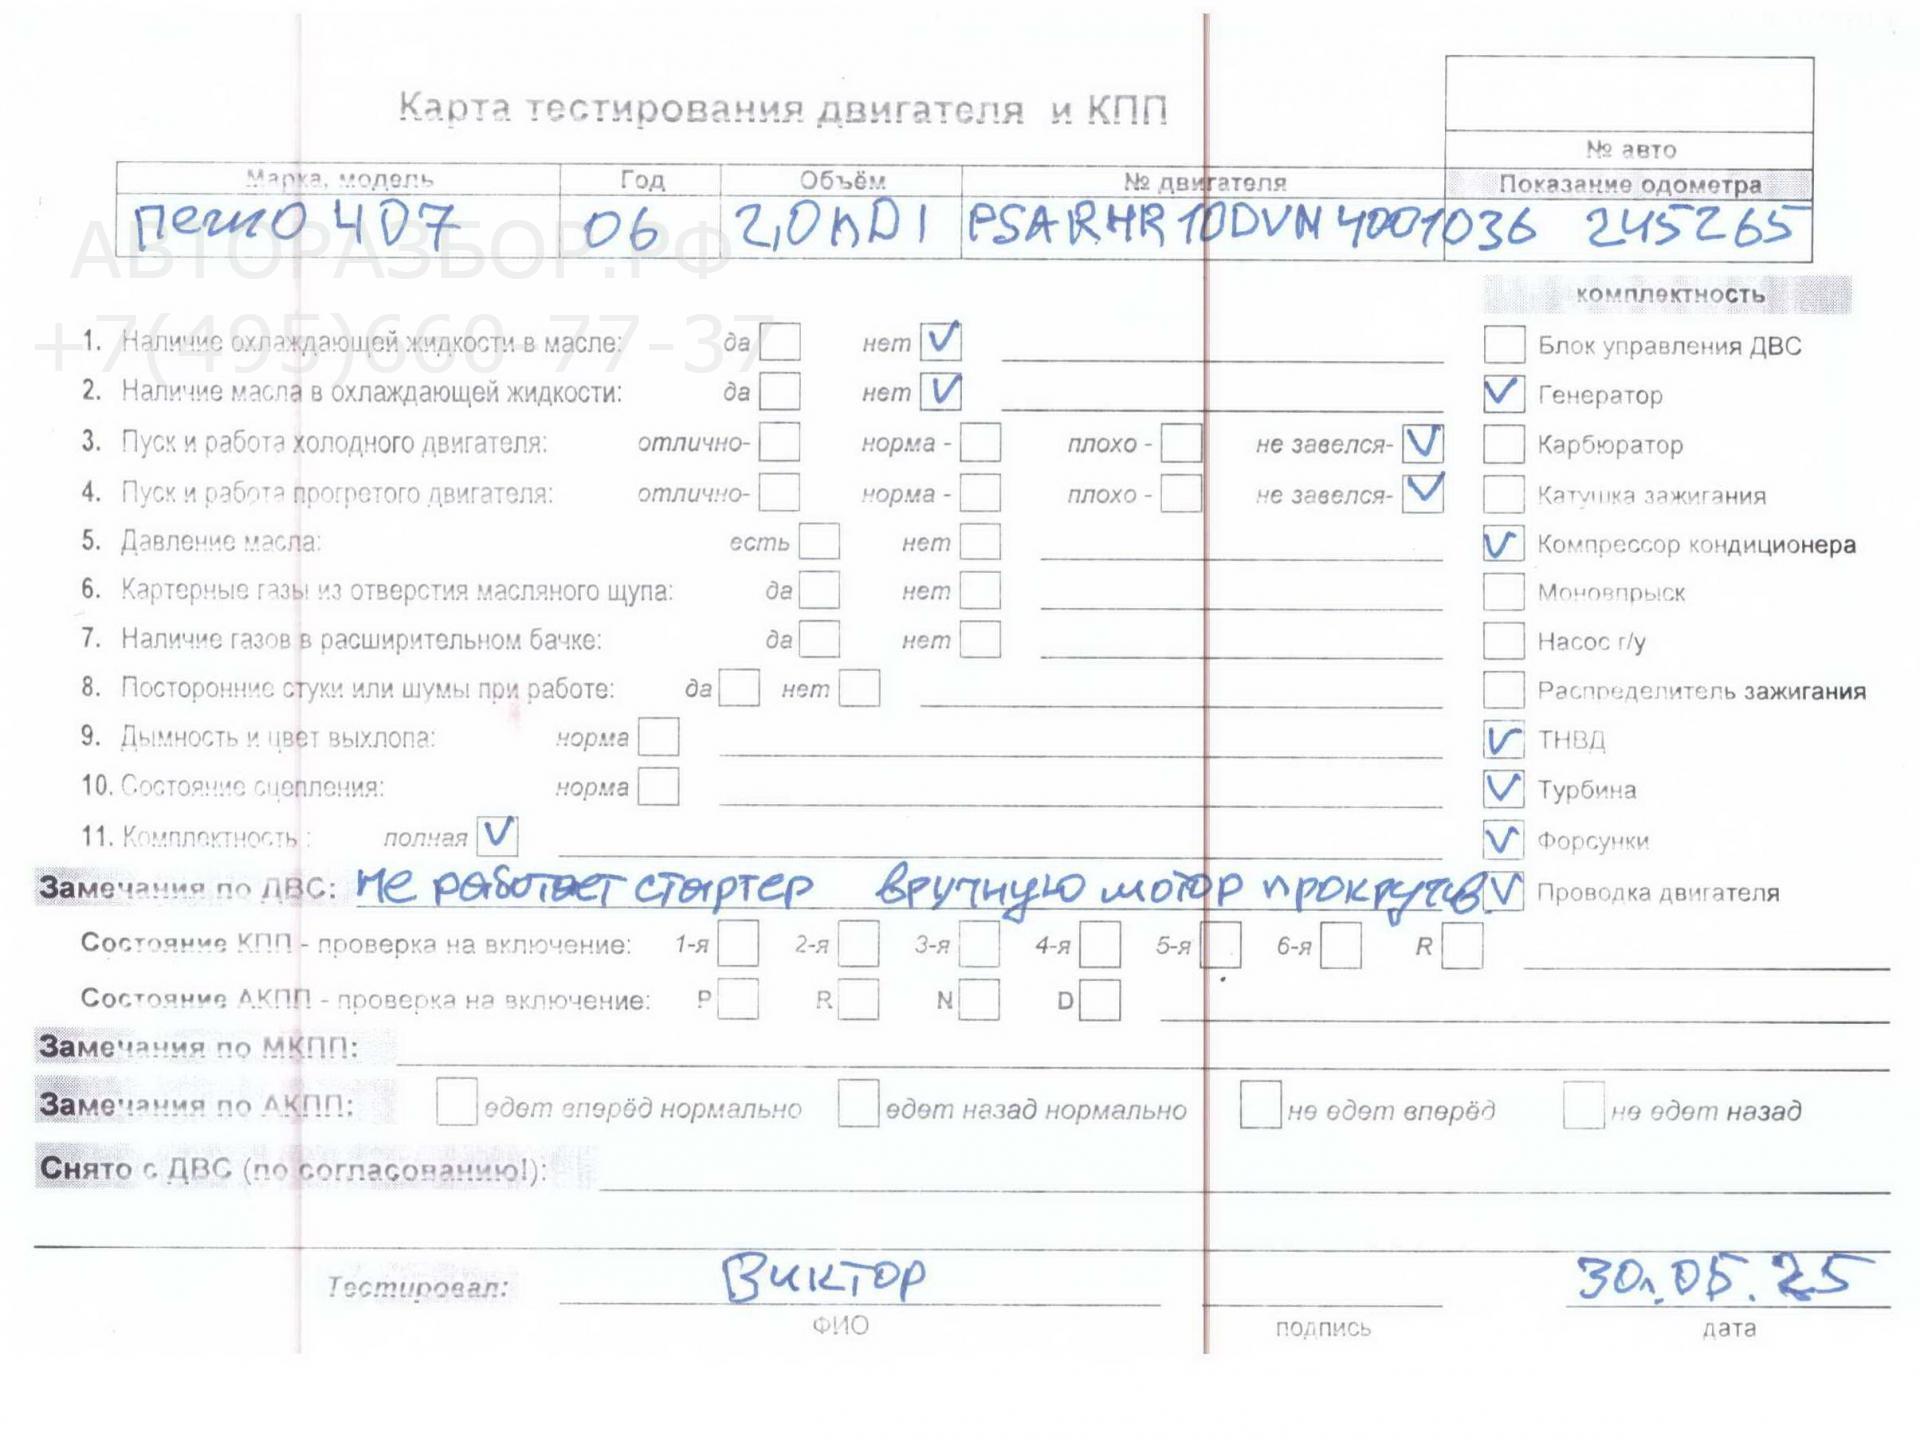 Карта тестирования двигателя и КПП
№ авто
Марка, модель Год Объём № двигателя Показание одометра
пежо 407 06 2,0 HDI PSARHR10DVN4001036 245265
АВТОРАЗБОР.РФ
+7(495)660-77-37
комплектность
1. Наличие охлаждающей жидкости в масле: да нет ✓ Блок управления ДВС
2. Наличие масла в охлаждающей жидкости: да нет ✓ ✓ Генератор
3. Пуск и работа холодного двигателя: отлично- норма - плохо - не завелся- ✓ Карбюратор
4. Пуск и работа прогретого двигателя: отлично- норма - плохо - не завелся- ✓ Катушка зажигания
5. Давление масла: есть нет ✓ Компрессор кондиционера
6. Картерные газы из отверстия масляного щупа: да нет Моновпрыск
7. Наличие газов в расширительном бачке: да нет Насос г/у
8. Посторонние стуки или шумы при работе: да нет Распределитель зажигания
9. Дымность и цвет выхлопа: норма ✓ ТНВД
10. Состояние сцепления: норма ✓ Турбина
11. Комплектность : полная ✓ ✓ Форсунки
Замечания по ДВС: не работает стартер вручную мотор ✓ Проводка двигателя
Состояние КПП - проверка на включение: 1-я 2-я 3-я 4-я 5-я 6-я R
Состояние АКПП - проверка на включение: P R N D
Замечания по МКПП:
Замечания по АКПП: едет вперёд нормально едет назад нормально не едет вперёд не едет назад
Снято с ДВС (по согласованию!):
Тестировал: Виктор 30.05.25
ФИО подпись дата